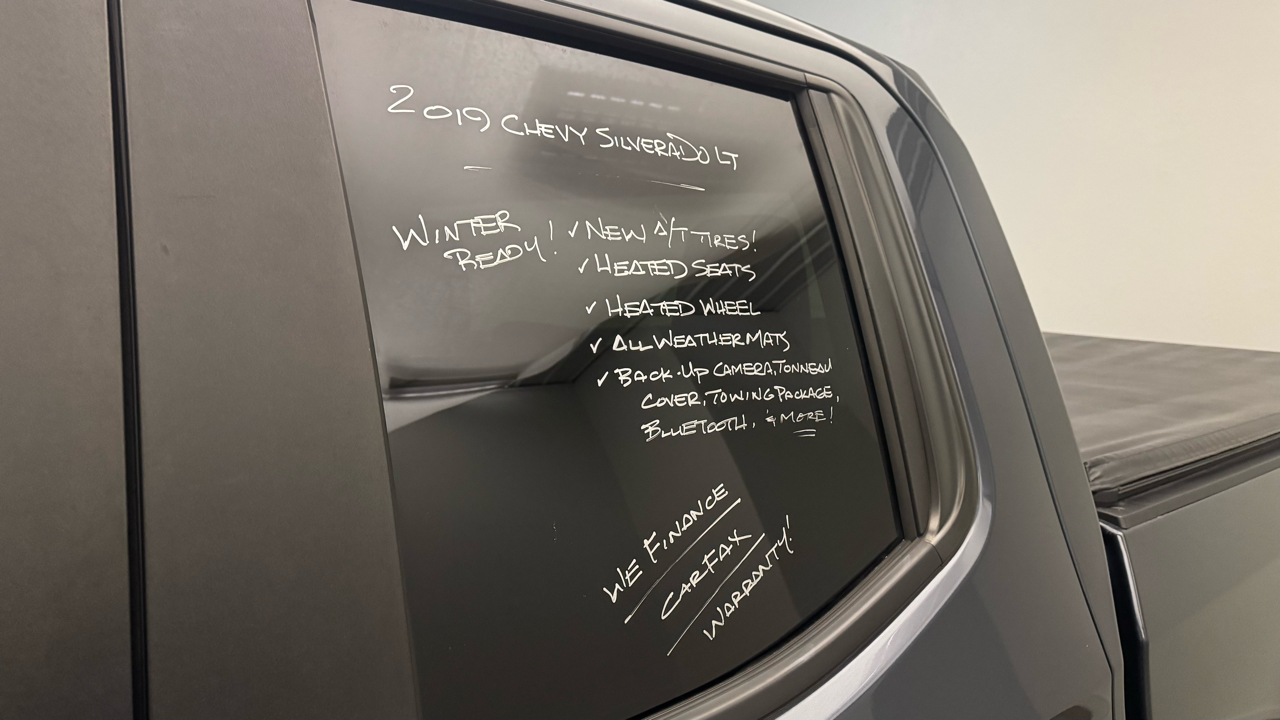 2019 CHEVY SILVERADO LT
WINTER
READY!
✓ NEW A/T TIRES!
✓ HEATED SEATS
✓ HEATED WHEEL
✓ ALL WEATHER MATS
✓ BACK-UP CAMERA, TONNEAU
COVER, TOWING PACKAGE,
BLUETOOTH, & MORE!
WE FINANCE
CARFAX
WARRANTY!